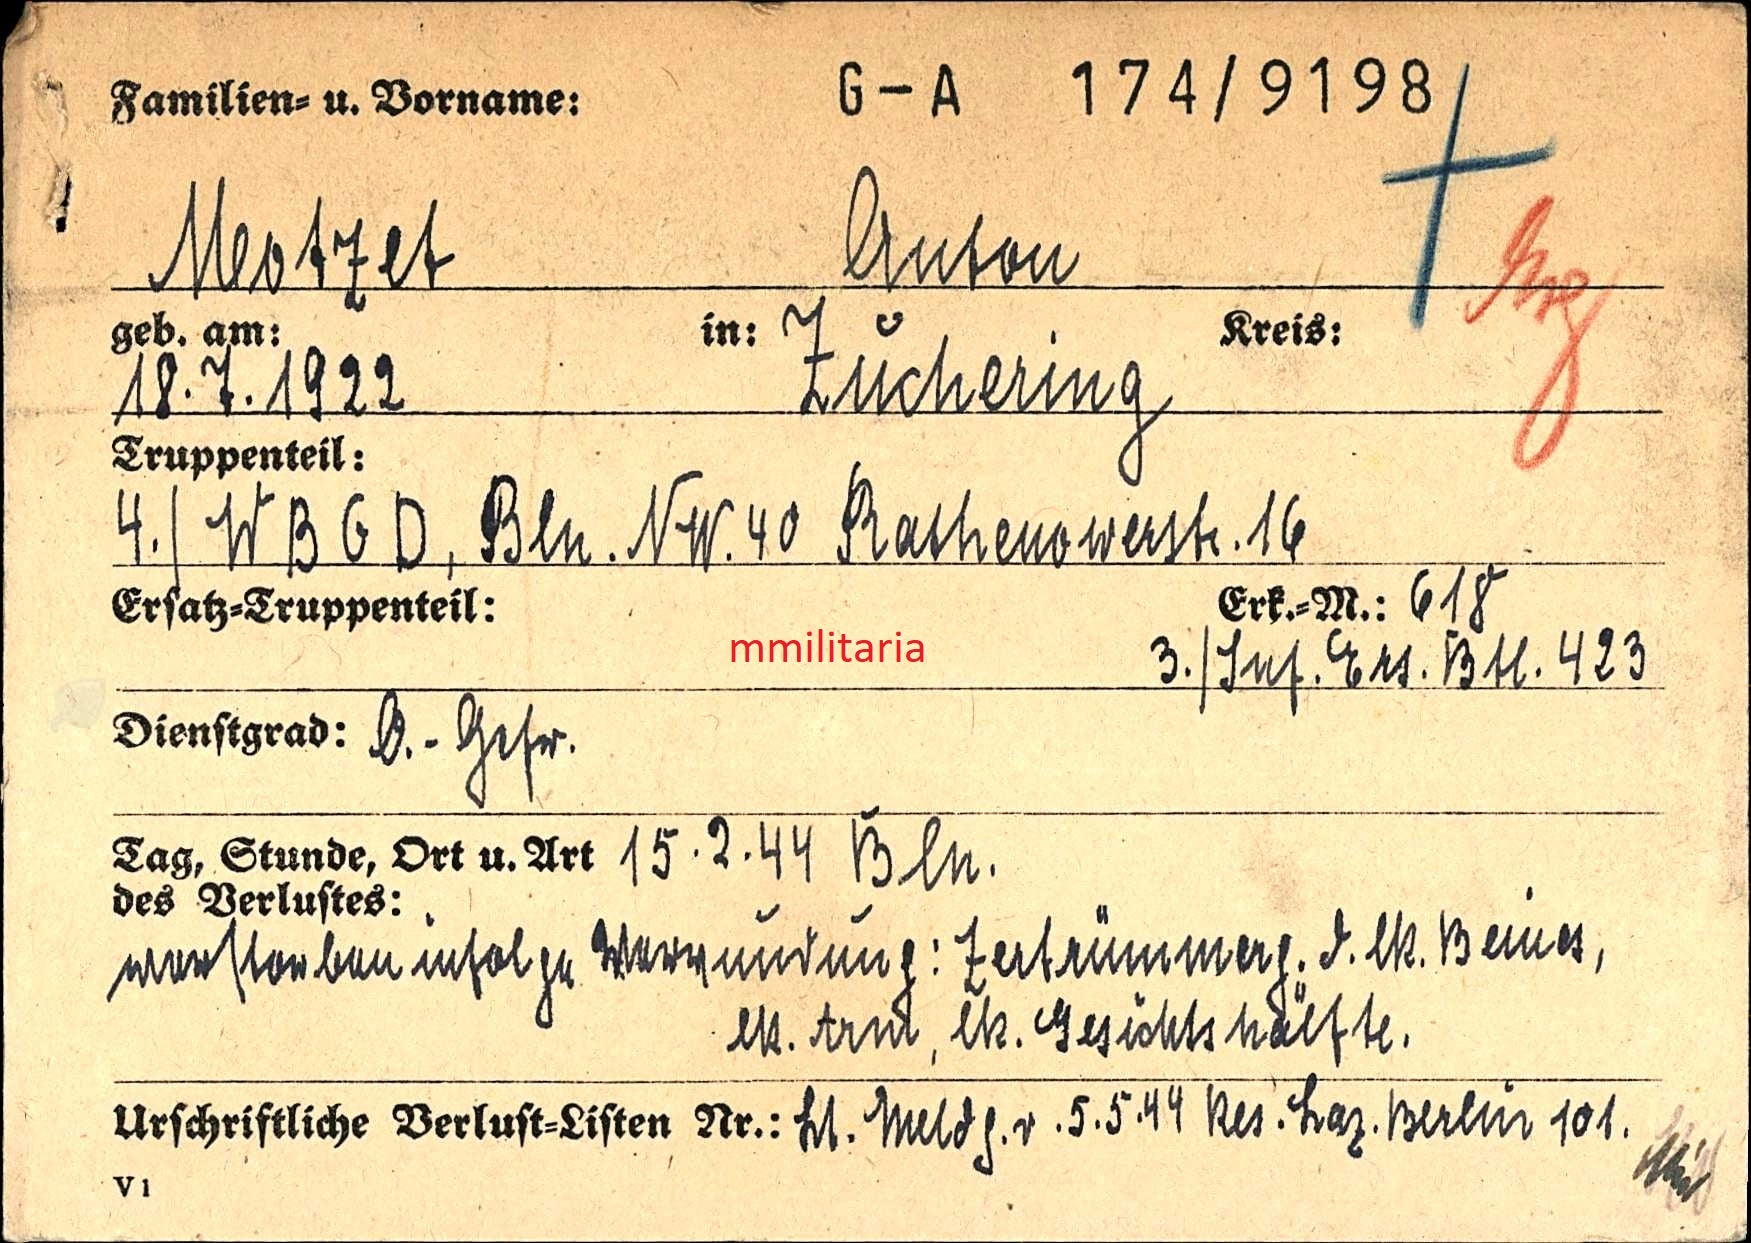 Familien- u. Vorname: G-A 174/9198
Motzet Anton
geb. am: in: Kreis:
18.7.1922 Zuchering
Truppenteil:
4./ W B G D, Bln. NW. 40 Rathenowerstr. 16
Ersatz-Truppenteil: Erk.-M.: 618
mmilitaria
3./Inf. Ers. Btl. 423
Dienstgrad: O.-Gefr.
Tag, Stunde, Ort u. Art 15.2.44 Bln.
des Verlustes:
verstorben infolge Verwundung: Zertrümmerg. d. lk. Beines,
lk. Arm, lk. Gesichtshälfte.
Urschriftliche Verlust-Listen Nr.: Lt. Meldg. v. 5.5.44 Res. Laz. Berlin 101.
V 1